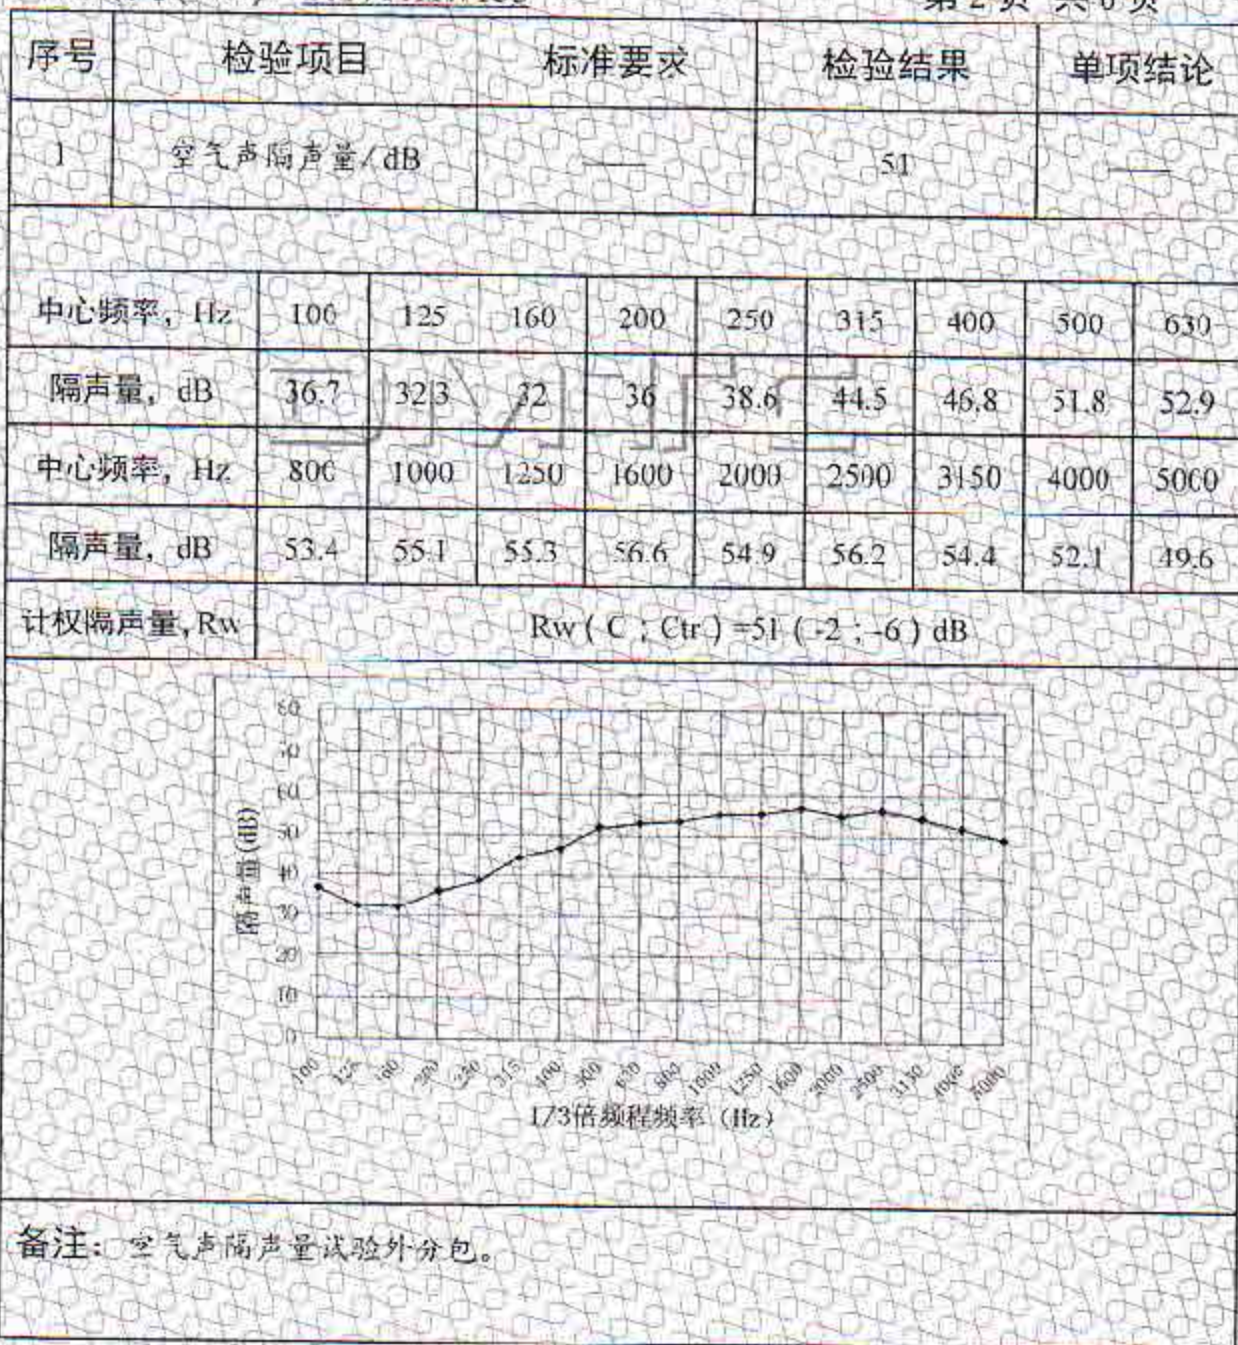 第 2 页 共 6 页
序号 检验项目 标准要求 检验结果 单项结论
1 空气声隔声量/dB —— 51 ——
中心频率, Hz 100 125 160 200 250 315 400 500 630
隔声量, dB 36.7 32.3 32 36 38.6 44.5 46.8 51.8 52.9
中心频率, Hz 800 1000 1250 1600 2000 2500 3150 4000 5000
隔声量, dB 53.4 55.1 55.3 56.6 54.9 56.2 54.4 52.1 49.6
计权隔声量,Rw Rw ( C ; Ctr ) =51 ( -2 ; -6 ) dB
80
70
60
50
40
30
20
10
0
隔声量(dB)
100 125 160 200 250 315 400 500 630 800 1000 1250 1600 2000 2500 3150 4000 5000
1/3倍频程频率 (Hz)
备注: 空气声隔声量试验外分包。